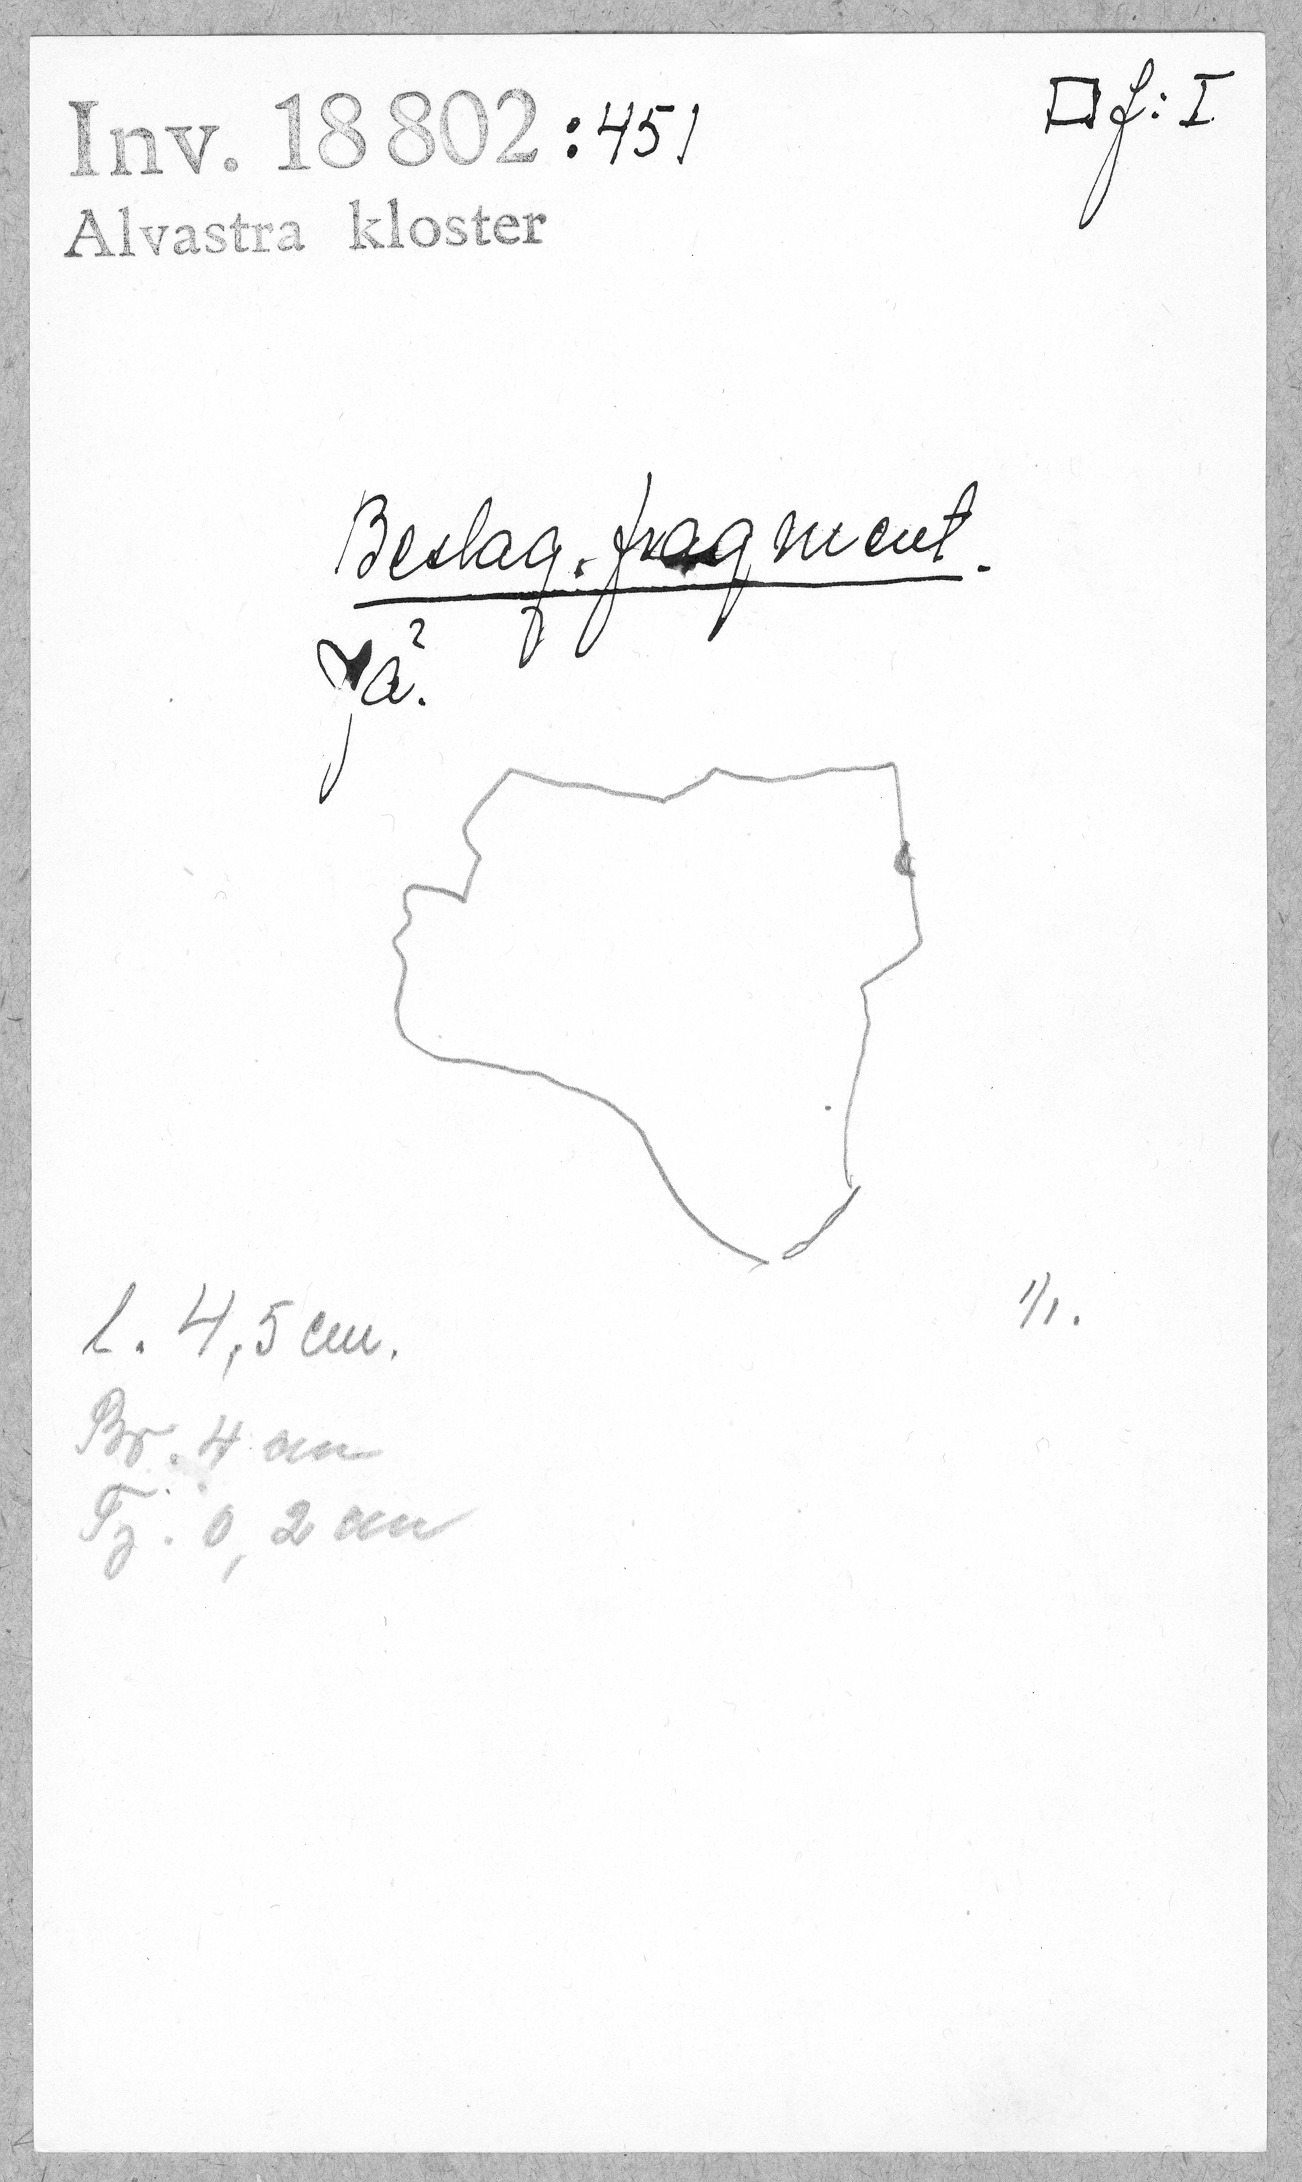 Inv. 18 802 :451
□ f: I
Alvastra kloster
Beslag. fragment.
L. 4,5 cm.
1/1.
Br. 4 cm
Tj. 0,2 cm